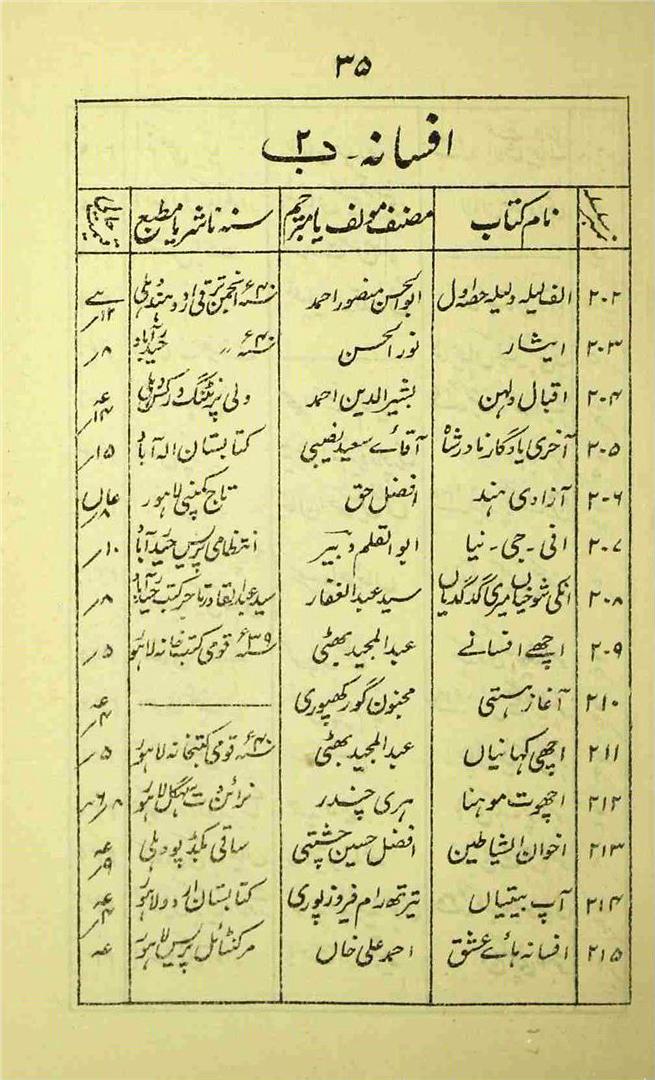 ۳۵
افسانہ ۔ ب۲
نمبر سلسلہ نام کتاب مصنف مولف یا مترجم سنہ ناشر یا مطبع قیمت حالی
۲۰۲ الف لیلہ ولیلہ حصہ اول ابوالحسن منصور احمد ۴۰ء انجمن ترقی اردو ہند دہلی ۱۲/
۲۰۳ ایثار نورالحسن ۴۰ء ״ حیدرآباد ۸/
۲۰۴ اقبال دلہن بشیرالدین احمد دلی پرنٹنگ ورکس دہلی عہ ۱۴/
۲۰۵ آخری یادگار نادر شاہ آقائے سعید نفیسی کتابستان الہ آباد ۱۵/
۲۰۶ آزادی ہند افضل حق تاج کمپنی لاہور ۸/
۲۰۷ افی ۔ جی ۔ نیا ابوالقلم دبیر انتظامی پریس حیدرآباد ۱۰/
۲۰۸ انکی شوخیاں میری گدگدیاں سید عبدالغفار سید عبدالقادر تاجر کتب حیدرآباد ۸/
۲۰۹ اچھے افسانے عبدالمجید بھٹی ۳۹ء قومی کتب خانہ لاہور ۵/
۲۱۰ آغاز ہستی مجنون گورکھپوری ـــــــــ عہ ۴/
۲۱۱ اچھی کہانیاں عبدالمجید بھٹی ۴۰ء قومی کتبخانہ لاہور ۵/
۲۱۲ اچھوت موہنا ہری چندر نرائن دت سہگل لاہور
۲۱۳ اخوان الشیاطین افضل حسین چشتی ساقی بکڈپو دہلی عہ ۹/
۲۱۴ آپ بیتیاں تیرتھ رام فیروزپوری کتابستان اردو لاہور عہ ۴/
۲۱۵ افسانہ ہائے عشق احمد علی خاں مرکنٹائل پریس لاہور عہ